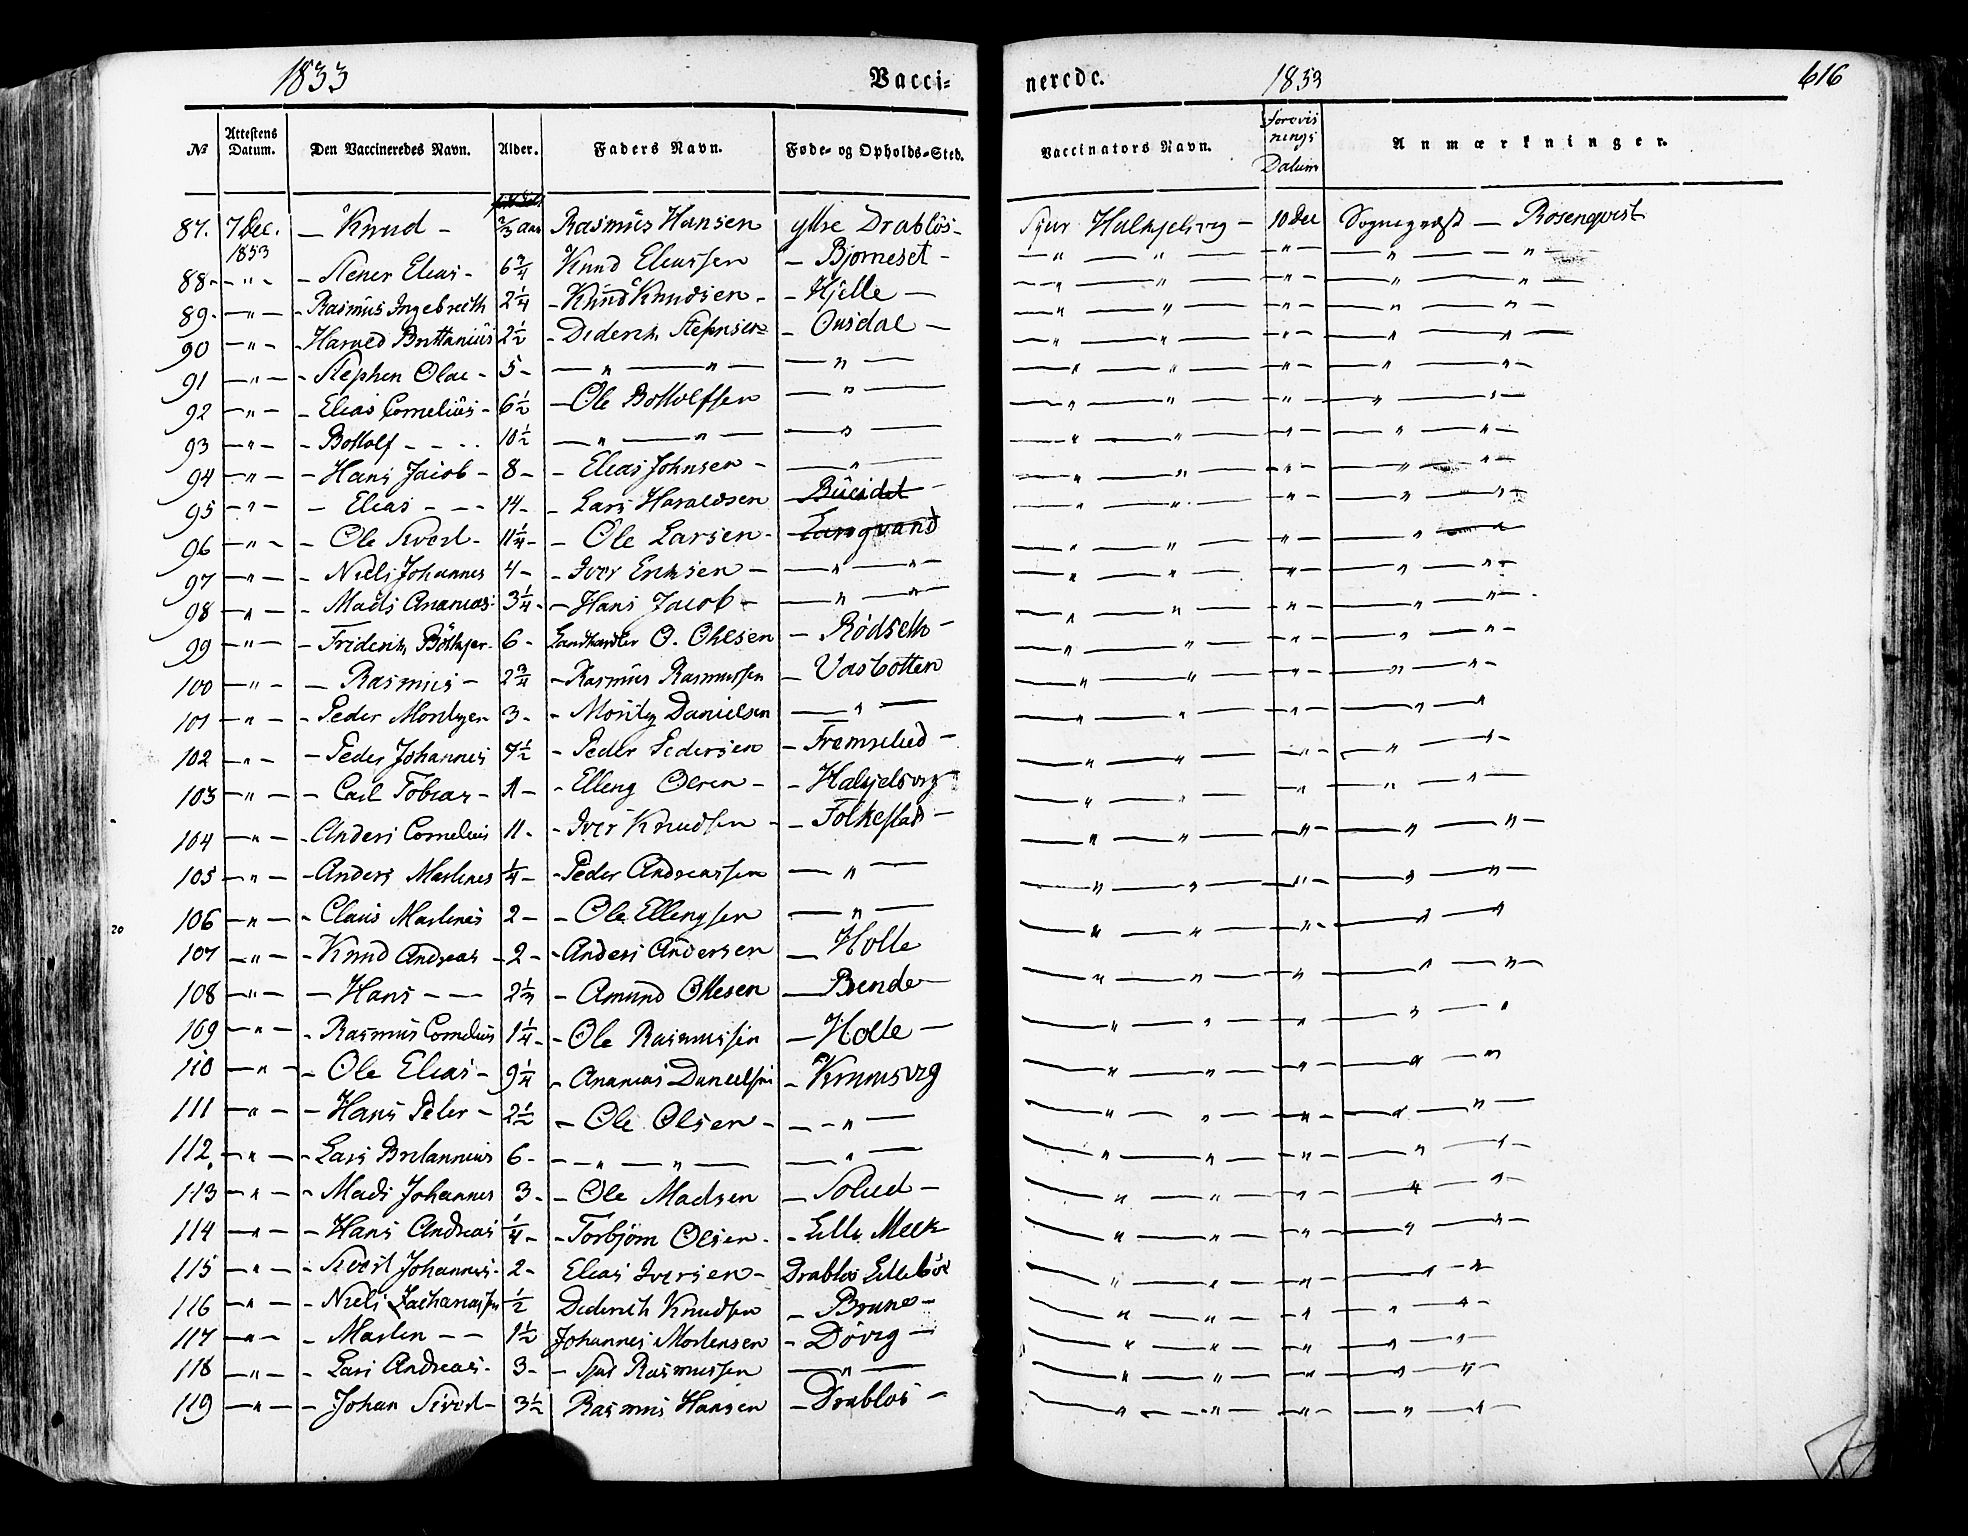 1833 Vacci- nerede. 1853 616
No Attestens Datum. Den Vaccineredes Navn. Alder. Faders Navn. Føde- og Opholds-Sted. Vaccinators Navn. Forevis nings Datum Anmærkninger.
87. 7 Dec. 1853 — Knud — 2/3 Aar Rasmus Hansen ytre Drabløs - Sjur Halkjelsvig — 10 Dec Sognepræst — Rosenqvist
88 - " - - Stener Elias - 6 3/4 Knud Eliassen - Bjørneset - — " — " — - " - — " — " —
89 - " - - Rasmus Ingebricth 2 1/4 - Knud Knudsen - - Hjelle — — " — " — - " - — " — " —
90 - " - - Harald Brittanius 2 1/2 - Diderich Stephsen - Onsdal — — " — " — - " - — " — " —
91 - " - - Stephen Olai - 5 - — " — " — — " — — " — " — - " - — " — " —
92 - " - - Elias Cornelius - 6 1/2 - Ole Bottolfsen — " — — " — " — - " - — " — " —
93 - " - - Bottolf - - - 10 1/2 — " — " — — " — — " — " — - " - — " — " —
94 - " - - Hans Jacob - 8 - - Elias Johnsen - — " — — " — " — - " - — " — " —
95 - " - - Elias - - - 14 - - Lars Haraldsen - — " — " — - " - — " — " —
96 - " - - Ole Sivert - 11 1/4 - - Ole Larsen - - Langvand — " — " — - " - — " — " —
97 - " - - Niels Johannes 4 - - Iver Ericksen - — " — " - — " — " — - " - — " — " —
98 - " - - Mads Ananias 3 1/4 - - Hans Jacob - — " — " - — " — " — - " - — " — " —
99 - " - - Friderich Bøthger - 6 - Landhandler O. Ohlsen - Rødseth - — " — " — - " - — " — " —
100 - " - - Rasmus - 2 3/4 - Rasmus Rasmussen - Vasbotten — " — " — - " - — " — " —
101 - " - - Peder 3 - - Moritz Danielsen — " — — " — " — - " - — " — " —
102 - " - - Peder Johannes 7 1/2 - Peder Pedersen - — " — " — - " - — " — " —
103 - " - - Carl Tobias - 1 - - Elling Olsen - - Halkjelsvig — " — " — - " - — " — " —
104 - " - - Anders Cornelius 11 - - Iver Knudsen - - Folkestad - — " — " — - " - — " — " —
105 - " - - Anders Martinus 1/4 - - Peder Andreassen — " — — " — " — - " - — " — " —
106 - " - - Claus Martinus 2 - - Ole Ellingsen — " — — " — " — - " - — " — " —
107 - " - - Knud Andreas - 2 - - Anders Andersen — Holle — " — " — - " - — " — " —
108 - " - - Hans - - 2 1/3 - Amund Ottesen — — " — " — - " - — " — " —
109 - " - - Rasmus Cornelius 1 1/4 - - Ole Rasmussen - Holle — — " — " — - " - — " — " —
110 - " - - Ole Elias - 9 1/4 - Ananias Danielsen - — " — " — - " - — " — " —
111 - " - - Hans Peter - 2 1/2 - Ole Olsen - — " — — " — " — - " - — " — " —
112. - " - - Lars Britannius 6 - - " - " — — " — — " — " — - " - — " — " —
113 - " - - Mads Johannes 3 - - Ole Madsen - — " — " — - " - — " — " —
114 - " - - Hans Andreas 1/4 - - Torbjørn Olsen - — " — " — - " - — " — " —
115 - " - - Sivert Johannes - 2 - Elias Iversen - Drabløs — " — " — - " - — " — " —
116 - " - - Niels Zachariassen 1/2 Diderich Knudsen - — " — " — - " - — " — " —
117 - " - - Martin - - 1 1/2 Johannes Mortensen - Døvig — — " — " — - " - — " — " —
118 - " - - Lars Andreas - 3 - - Rasmussen — " — — " — " — - " - — " — " —
119 - " - - Johan Sivert - 3 1/2 Rasmus Hansen - Drabløs - — " — " — - " - — " — " —
20